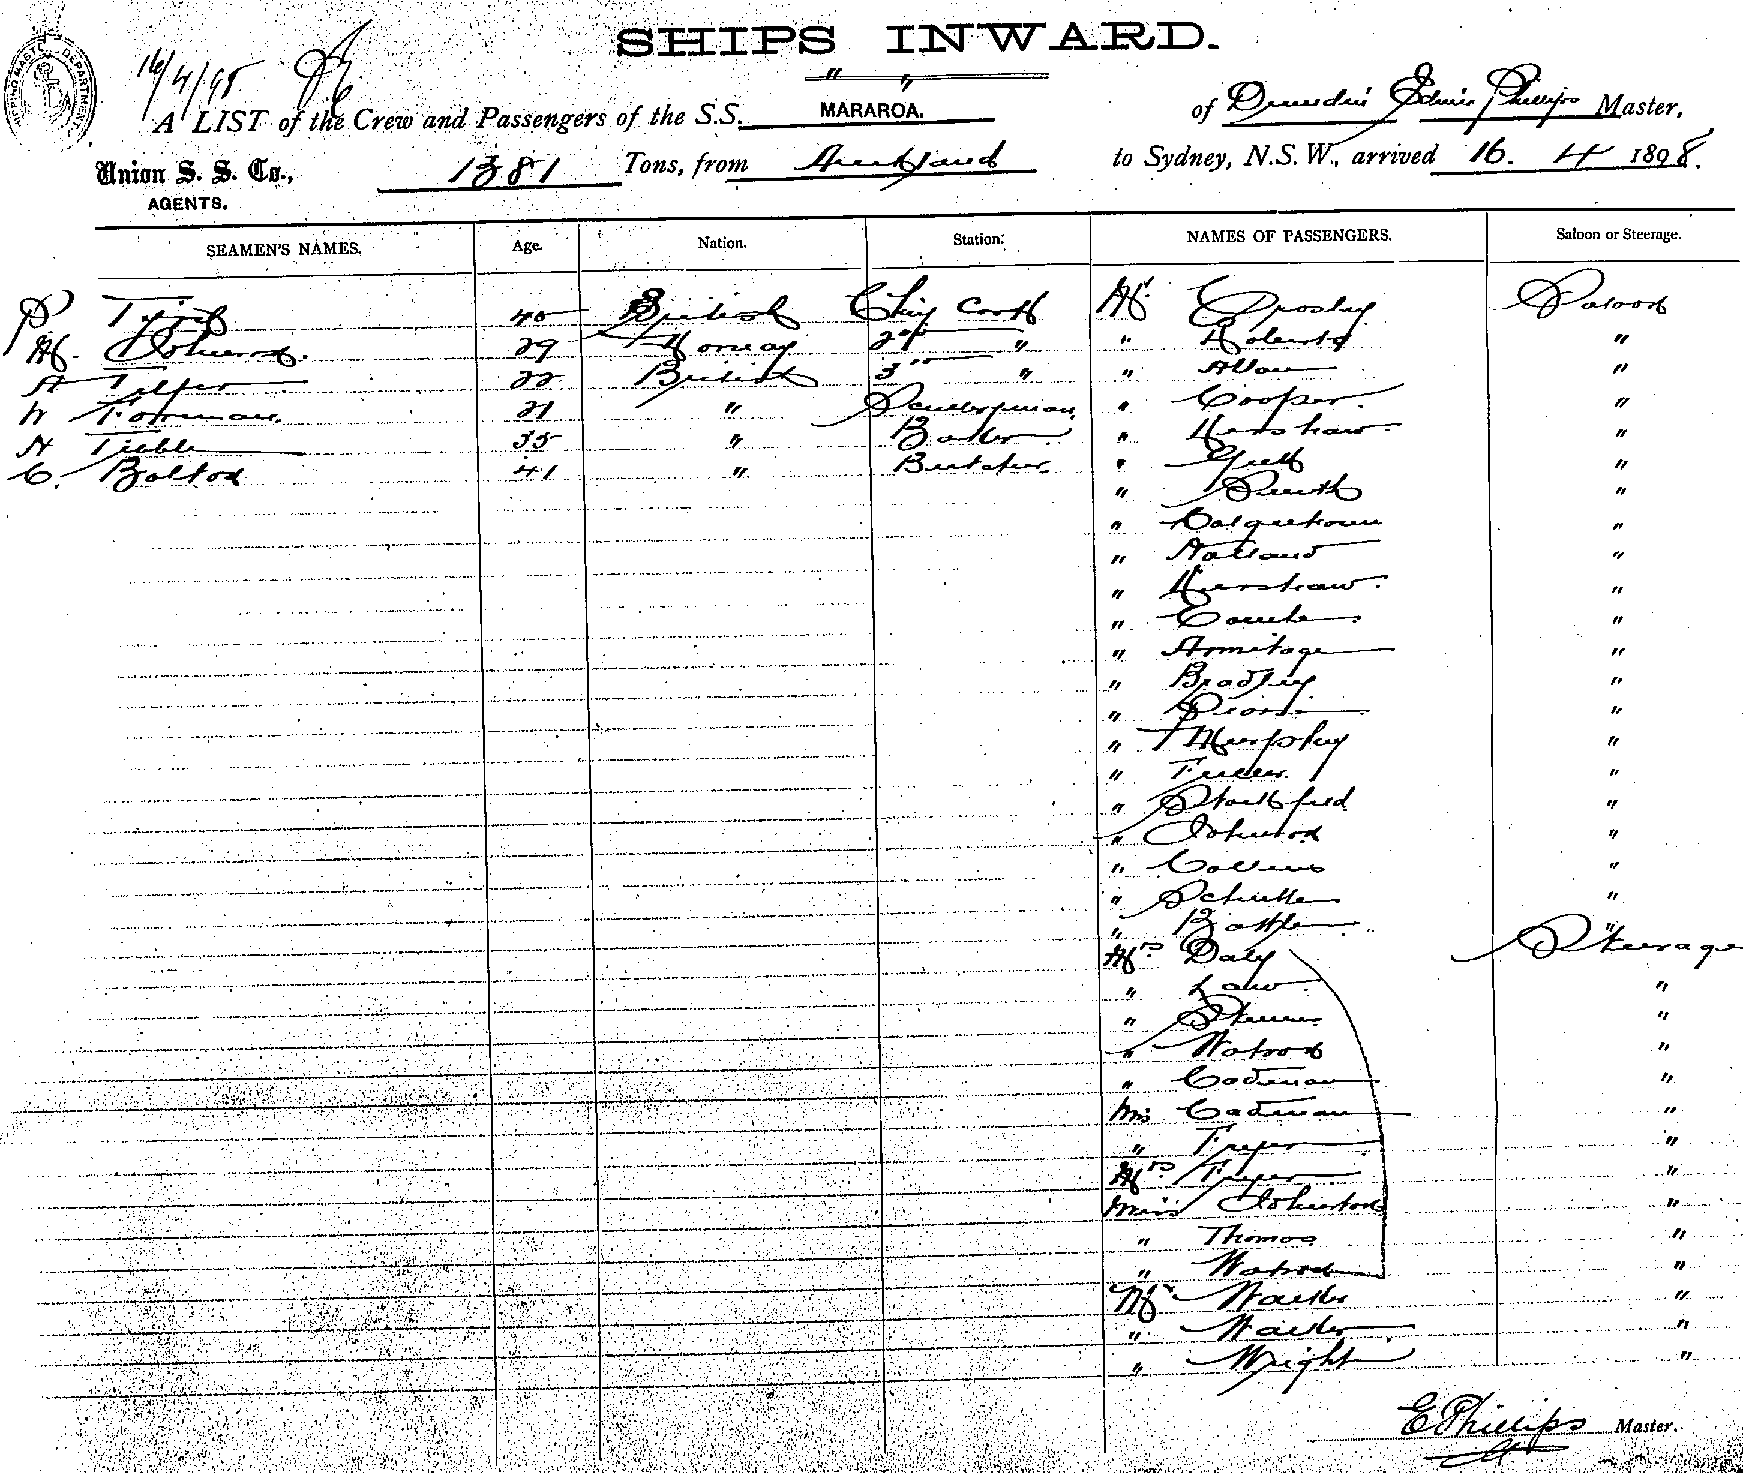 SHIPS INWARD.
" "
16/4/98
A LIST of the Crew and Passengers of the S.S. MARAROA. of Dunedin Edwin Phillips Master,
Union S. S. Co., 1381 Tons, from Auckland to Sydney, N.S.W., arrived 16. 4 1898.
AGENTS.
SEAMEN'S NAMES. Age. Nation. Station. NAMES OF PASSENGERS. Saloon or Steerage.
P 40 British Chief Cook Mr. Crosby Saloon
M. Johnson. 29 Norway 2nd " " Roberts "
A Telfer 22 British 3rd " " Allan "
W Foreman. 21 " Sculleryman " Cooper. "
A Tibble 35 " Baker " Kershaw "
C. Bolton 41 " Butcher " "
" Smith "
" Colquhoun "
" Holland "
" Kershaw. "
" "
" Armitage "
" Bradley "
" "
" Murphy "
" Fuller "
" "
" Johnson "
" Collins "
" "
" "
Mrs Daly Steerage
" Law "
" "
" Watson "
" Cadman "
Mrs Cadman "
" "
Mrs "
Miss Johnston "
" Thomas "
" Watson "
Mr "
" "
" Wright "
E Phillips Master.